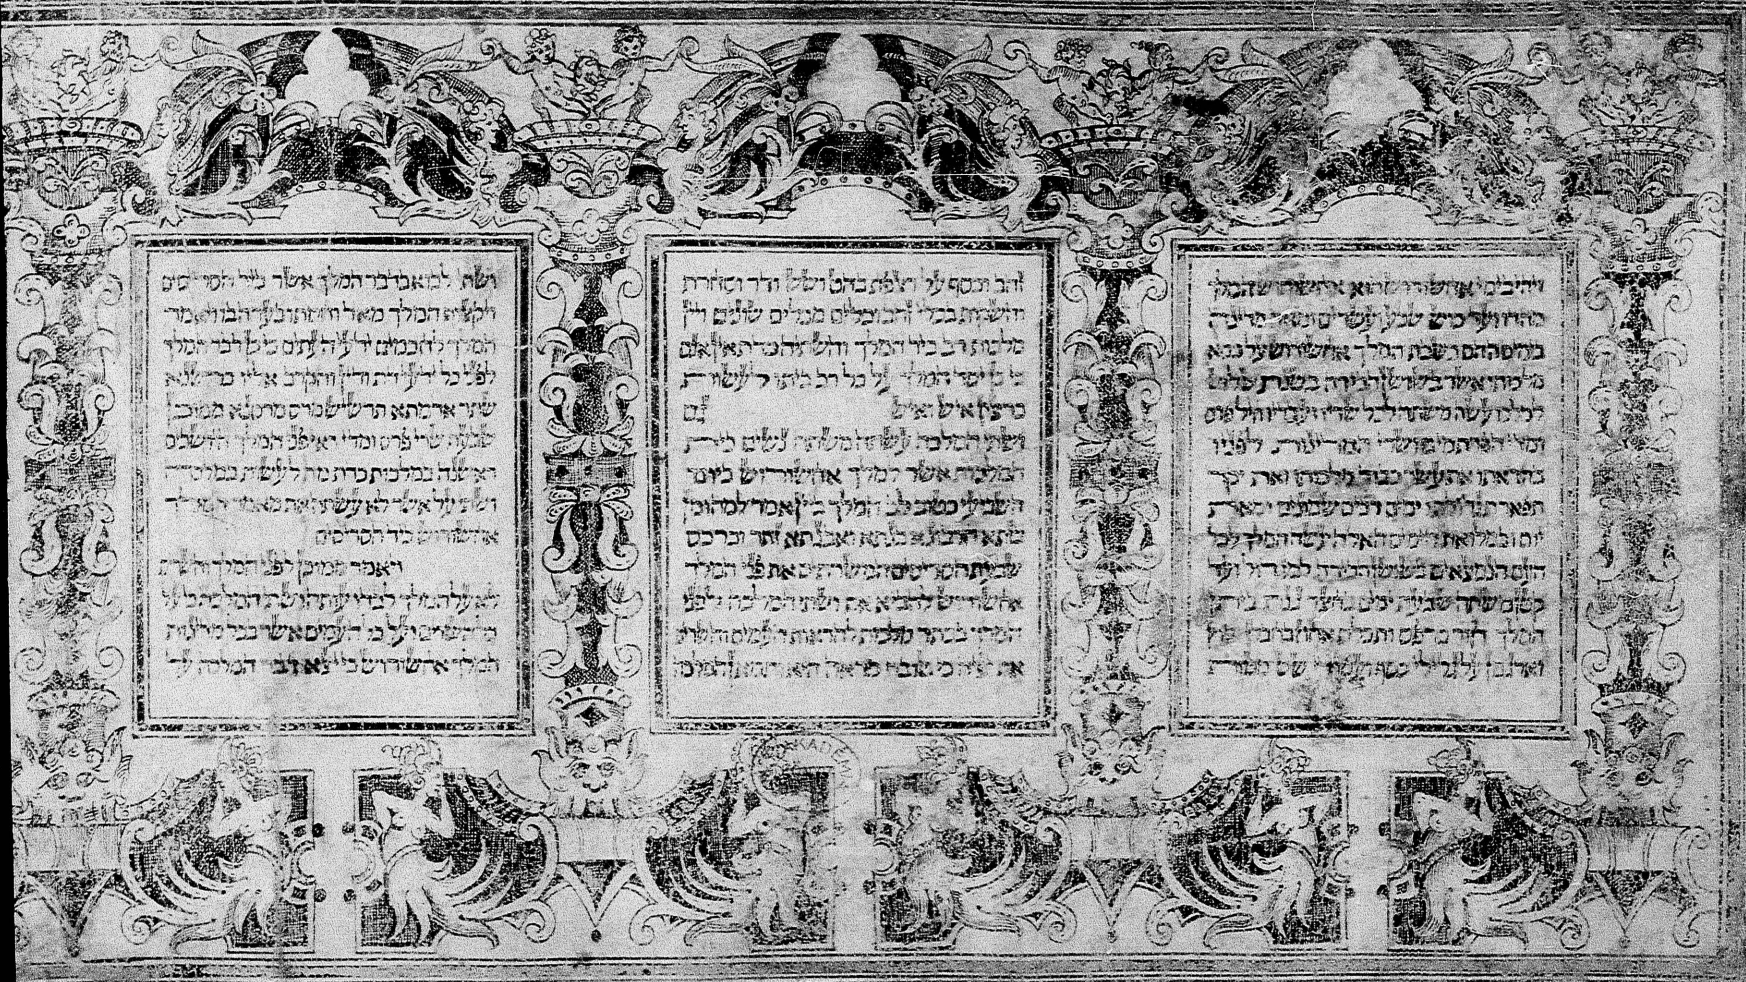 ויהי בימי אחשורוש הוא אחשורוש המלך
מהדו ועד כוש שבע ועשרים ומאה מדינה
בימים ההם כשבת המלך אחשורוש על כסא
מלכותו אשר בשושן הבירה בשנת שלוש
למלכו עשה משתה לכל שריו ועבדיו חיל פרס
ומדי הפרתמים ושרי המדינות לפניו
בהראתו את עשר כבוד מלכותו ואת יקר
תפארת גדולתו ימים רבים שמונים ומאת
יום ובמלואת הימים האלה עשה המלך לכל
העם הנמצאים בשושן הבירה למגדול ועד
קטן משתה שבעת ימים בחצר גנת ביתן
המלך חור כרפס ותכלת אחוז בחבלי בוץ
וארגמן על גלילי כסף ועמודי שש מטות
זהב וכסף על רצפת בהט ושש ודר וסחרת
והשקות בכלי זהב וכלים מכלים שונים ויין
מלכות רב כיד המלך והשתיה כדת אין אנס
כי כן יסד המלך על כל רב ביתו לעשות
כרצון איש ואיש גם
ושתי המלכה עשתה משתה נשים בית
המלכות אשר למלך אחשורוש ביום
השביעי כטוב לב המלך ביין אמר למהומן
בזתא חרבונא בגתא ואבגתא זתר וכרכס
שבעת הסריסים המשרתים את פני המלך
אחשורוש להביא את ושתי המלכה לפני
המלך בכתר מלכות להראות העמים והשרים
את יפיה כי טובת מראה היא ותמאן המלכה
ושתי לבוא בדבר המלך אשר ביד הסריסים
ויקצף המלך מאד וחמתו בערה בו ויאמר
המלך לחכמים ידעי העתים כי כן דבר המלך
לפני כל ידעי דת ודין והקרב אליו כרשנא
שתר אדמתא תרשיש מרס מרסנא ממוכן
שבעת שרי פרס ומדי ראי פני המלך הישבים
ראשנה במלכות כדת מה לעשות במלכה
ושתי על אשר לא עשתה את מאמר המלך
אחשורוש ביד הסריסים
ויאמר מומכן לפני המלך והשרים
לא על המלך לבדו עותה ושתי המלכה כי על
כל השרים ועל כל העמים אשר בכל מדינות
המלך אחשורוש כי יצא דבר המלכה על